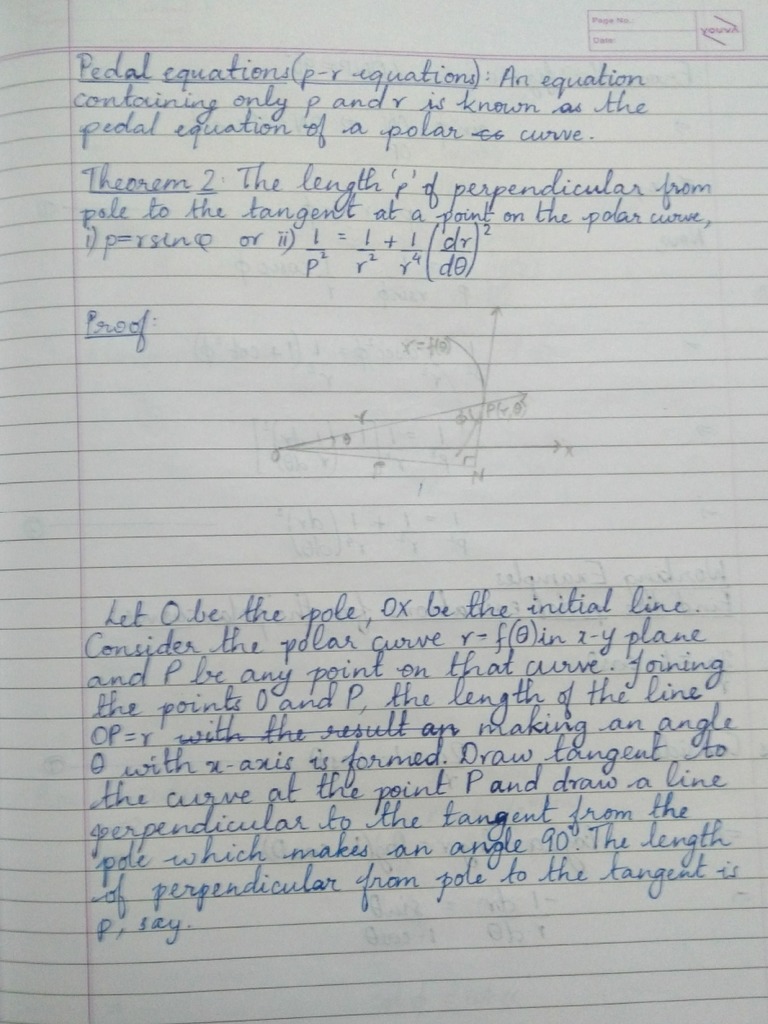 Page No.:
Date:
youva
Pedal equations (p-r equations): An equation
containing only p and r is known as the
pedal equation of a polar curve.
Theorem 2: The length 'p' of perpendicular from
pole to the tangent at a point on the polar curve,
i) p=rsinφ or ii) 1/p² = 1/r² + 1/r⁴ (dr/dθ)²
Proof:
r=f(θ)
r
φ P(r,θ)
θ
O
X
P
N
Let O be the pole, OX be the initial line.
Consider the polar curve r=f(θ) in x-y plane
and P be any point on that curve. Joining
the points O and P, the length of the line
OP=r with the result an making an angle
θ with x-axis is formed. Draw tangent to
the curve at the point P and draw a line
perpendicular to the tangent from the
pole which makes an angle 90°. The length
of perpendicular from pole to the tangent is
p, say.